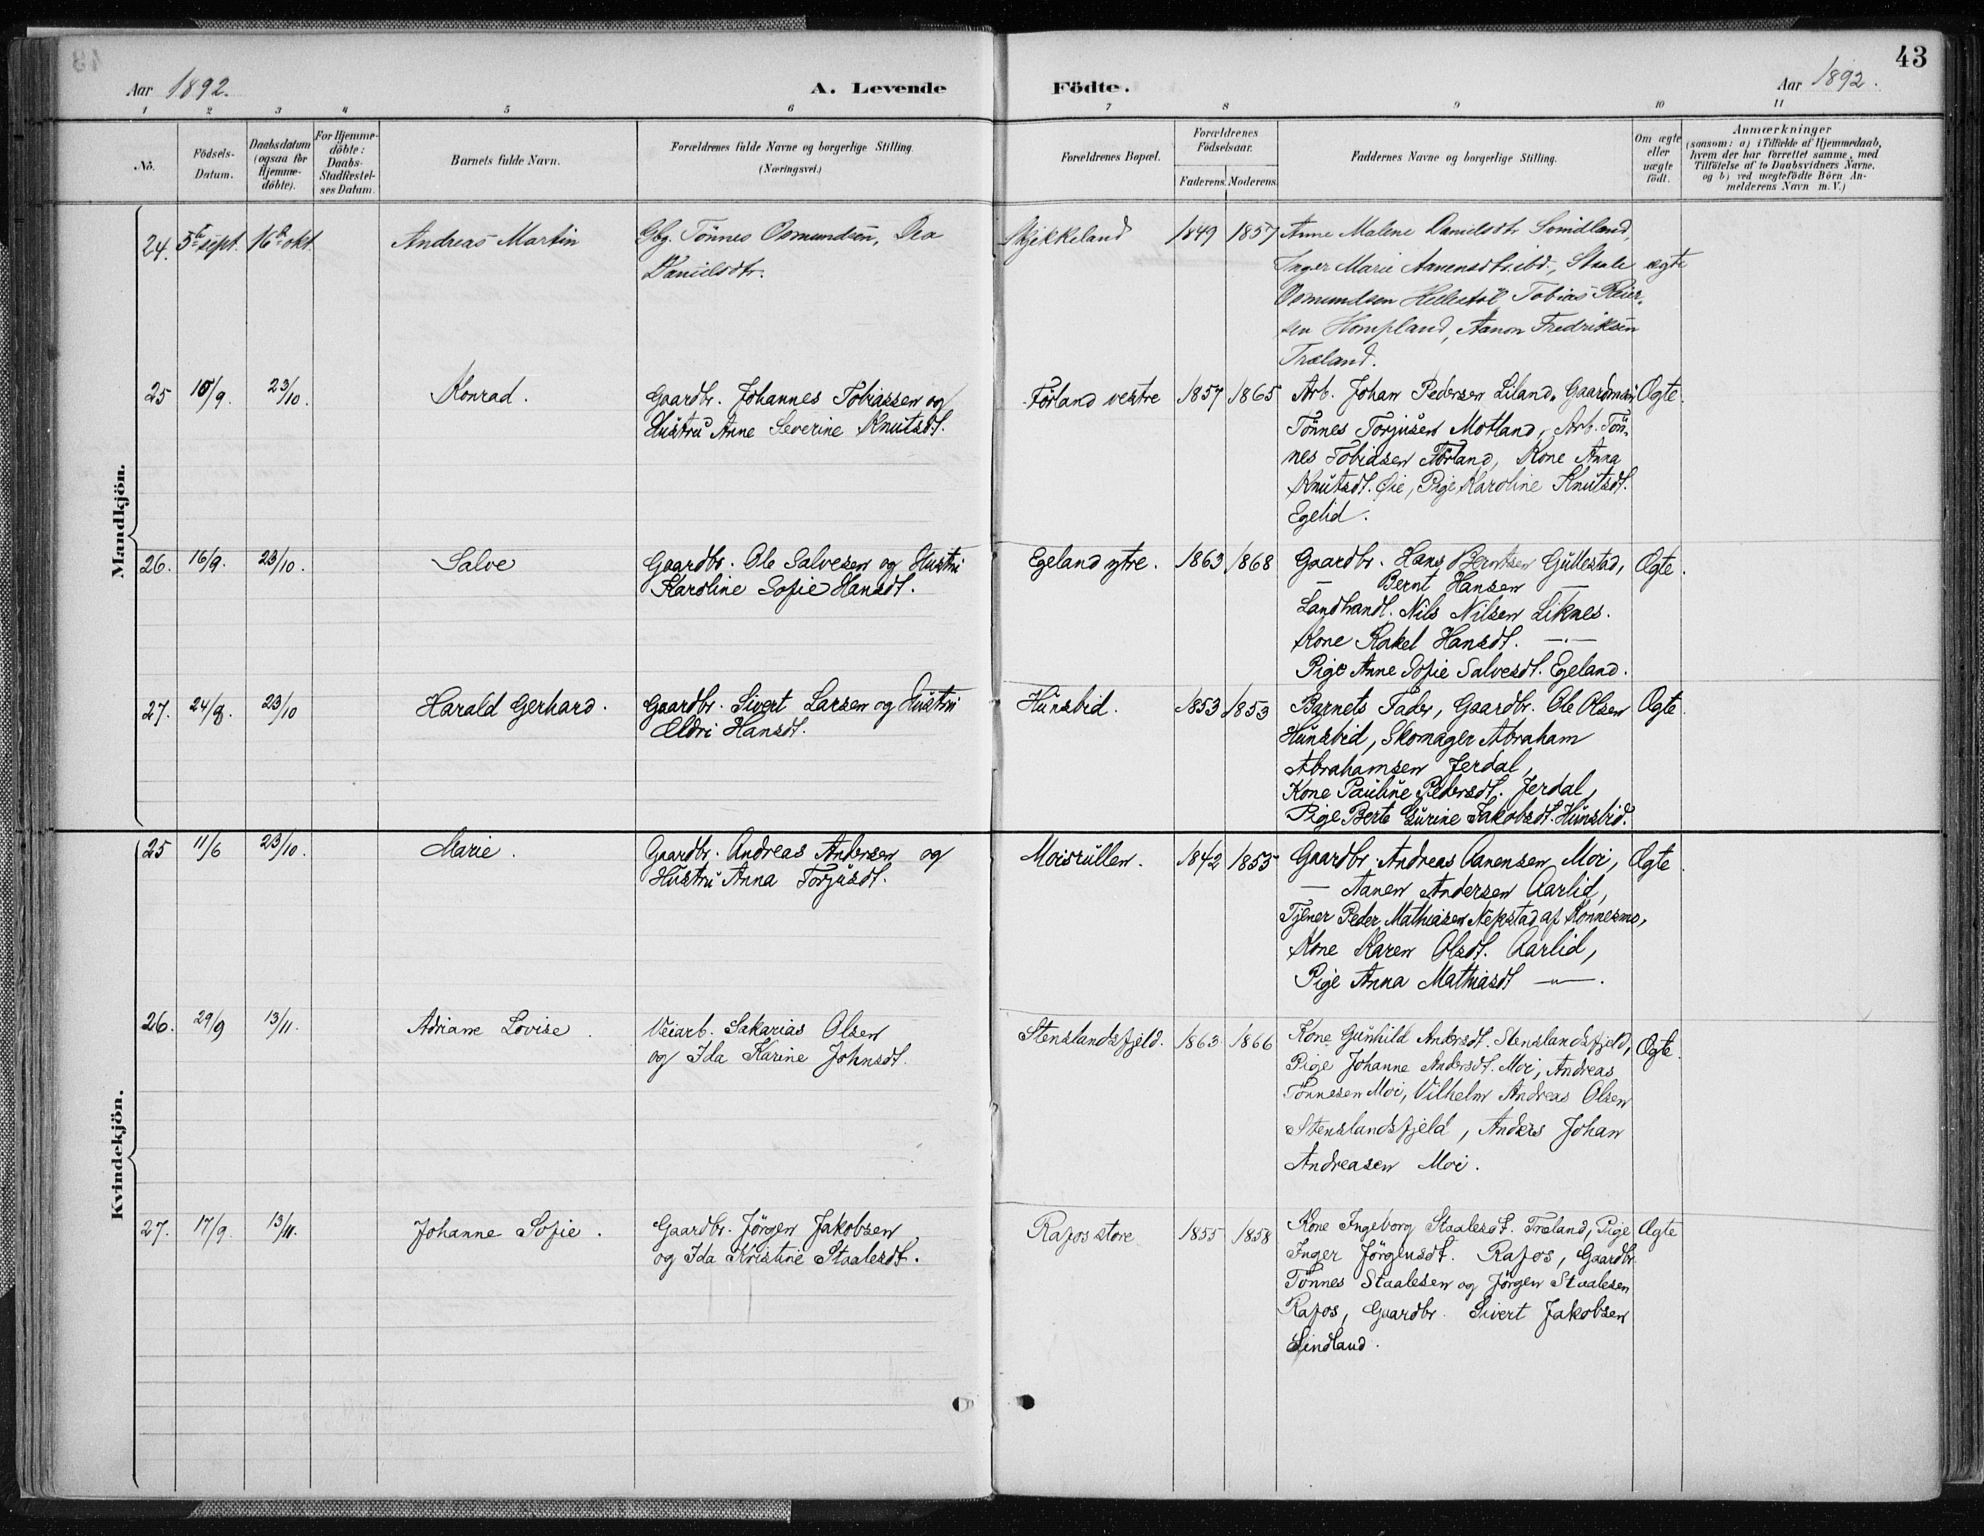 43
Aar 1892.
A. Levende
Födte.
Aar 1892.
1 2 3 4 5 6 7 8 9 10 11
No.
Födsels-
Datum.
Daabsdatum
(ogsaa for
Hjemme-
döbte).
For Hjemme-
döbte:
Daabs-
Stadfestel-
ses Datum.
Barnets fulde Navn.
Forældrenes fulde Navne og borgerlige Stilling.
(Næringsvei.)
Forældrenes Bopæl.
Forældrenes
Födselsaar.
Faderens. Moderens.
Faddernes Navne og borgerlige Stilling.
Om ægte
eller
uægte
födt.
Anmærkninger
(saasom: a) i Tilfælde af Hjemmedaab,
hvem der har forrettet samme, med
Tilföielse af to Daabsvidners Navne,
og b) ved uægtefödte Börn An-
melderens Navn m. V.)
Mandkjön.
24. 5te sept. 16de okt. Andreas Martin
Gbg. Tönnes Osmundsen, Dea
Danielsdtr.
1849 1857
Anne Malene Danielsdtr Svindland,
Inger Marie Aanensdtr. ibd., Staale
Osmundsen Hellestöl Tobias Reier-
sen Hompland, Aanon Fredriksen
Træland.
ægte
25 10/9. 23/10. Konrad.
Gaardbr. Johannes Tobiassen og
Hustru Anne Severine Knutsdt.
Förland vestre 1857 1865
Arb. Johan Pedersen Liland. Gaardman
Tönnes Torjusen Motland, Arb. Tön-
nes Tobiasen Förland, Kone Anna
Knutsdt. Øie, Pige Karoline Knutsdt.
Egelid.
Ægte.
26. 16/9. 23/10. Salve
Gaardbr. Ole Salvesen og Hustru
Karoline Sofie Hansdt.
Egeland ytre. 1863 1868
Gaardbr. Hans Berntsen Gullestad,
— Bernt Hansen —
Landhandl. Nils Nilsen Liknes.
Kone Rakel Hansdt. —
Pige Anne Sofie Salvesdt. Egeland.
Ægte.
27. 24/9. 23/10 Harald Gerhard.
Gaardbr. Sivert Larsen og Hustru
Eldri Hansdt.
Hunsbid. 1853 1853
Barnets Fader, Gaardbr. Ole Olsen
Hunsbid, Skomager Abraham
Abrahamsen Jerdal,
Kone Pauline Pedersdt. Jerdal,
Pige Berte Gurine Jakobsdt. Hunsbid.
Ægte.
Kvindekjön.
25 11/6 23/10. Marie.
Gaardbr. Andreas Andersen og
Hustru Anna Torjusdt.
Moisrullen. 1842 1853
Gaardbr. Andreas Aanensen, Moi,
— Aanen Andersen Aarlid,
Tjener Peder Mathiasen Nepstad af Konnesmo,
Kone Karen Olsdt. Aarlid,
Pige Anna Mathiasdt — " —.
Ægte.
26. 29/9 13/11. Adriane Lovise.
Veiarb. Sakarias Olsen
og Ida Karine Johnsdt.
Stenslandsfjeld. 1863 1866
Kone Gunhild Andersdt. Stenslandsfjeld,
Pige Johanne Andersdt. Moi, Andreas
Tönnesen Moi, Vilhelm Andreas Olsen
Stenslandsfjeld, Anders Johan
Andreasen Moi.
Ægte.
27. 17/9. 13/11. Johanne Sofie.
Gaardbr. Jörgen Jakobsen
og Ida Kristine Staalesdt.
Rafos store 1855 1858
Kone Ingeborg Staalesdt. Træland, Pige
Inger Jörgensdt. Rafos, Gaardbr.
Tönnes Staalesen og Jörgen Staalesen
Rafos, Gaardbr. Sivert Jakobsen
Sindland.
Ægte